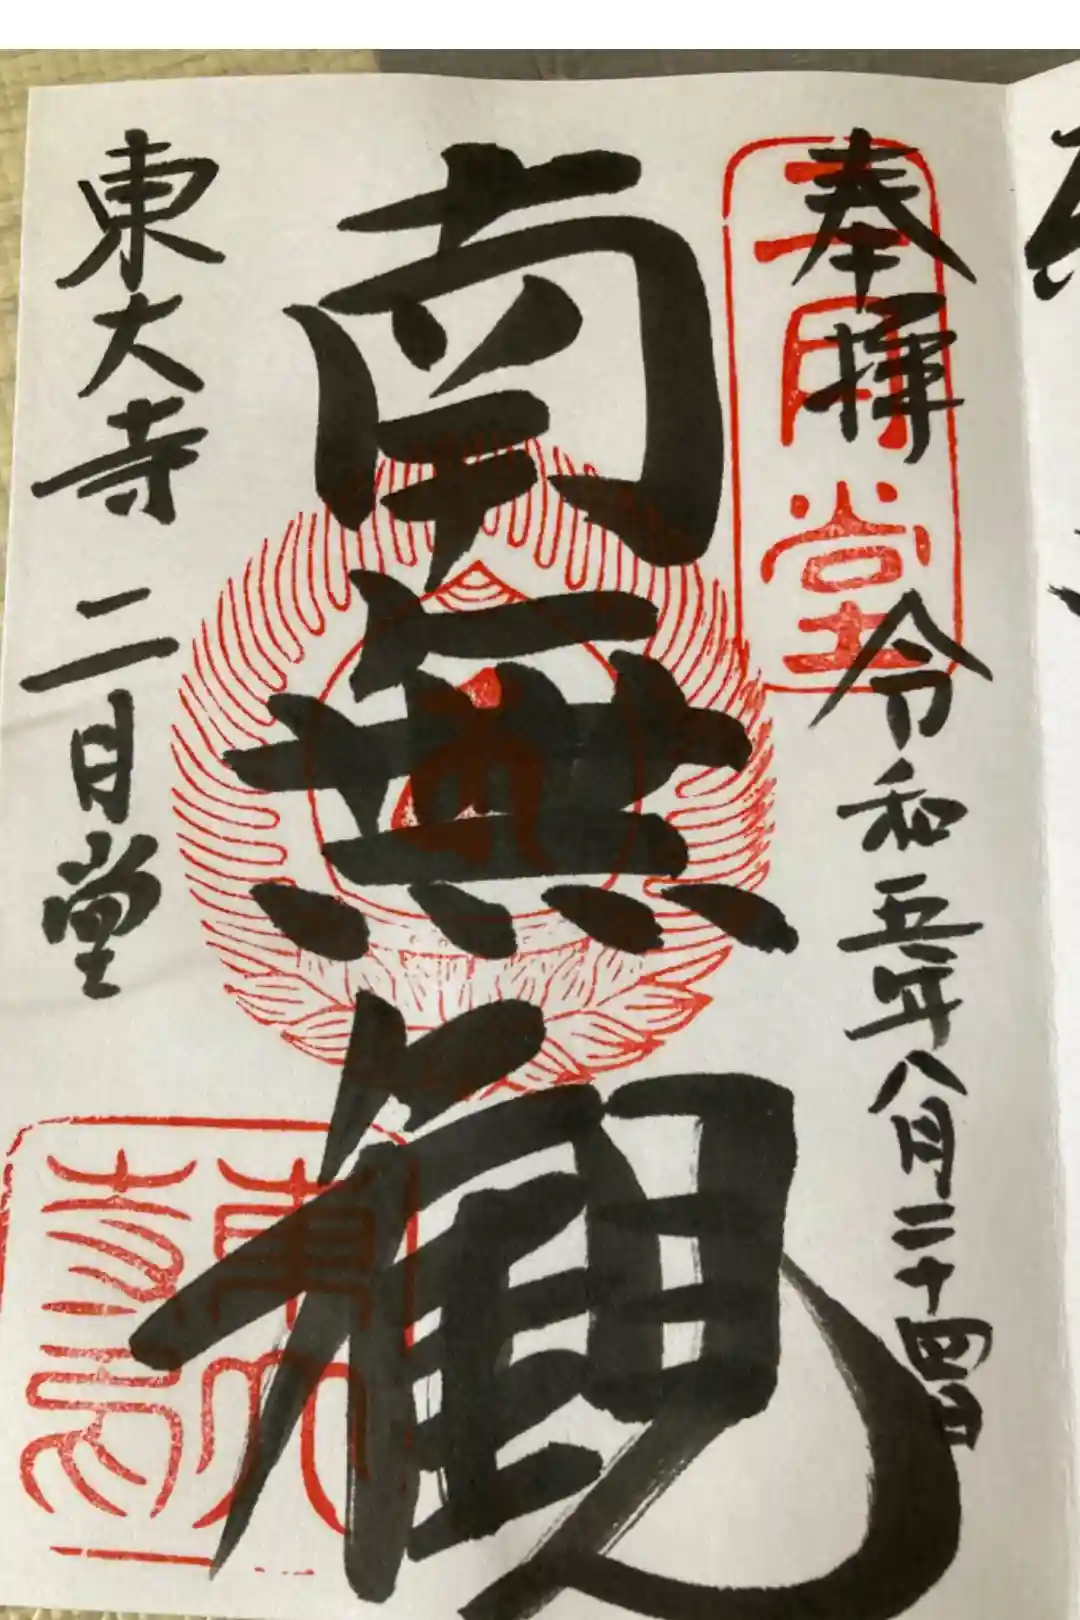 奉拝
二月堂
令和五年八月二十四日
南無観
東大寺 二月堂